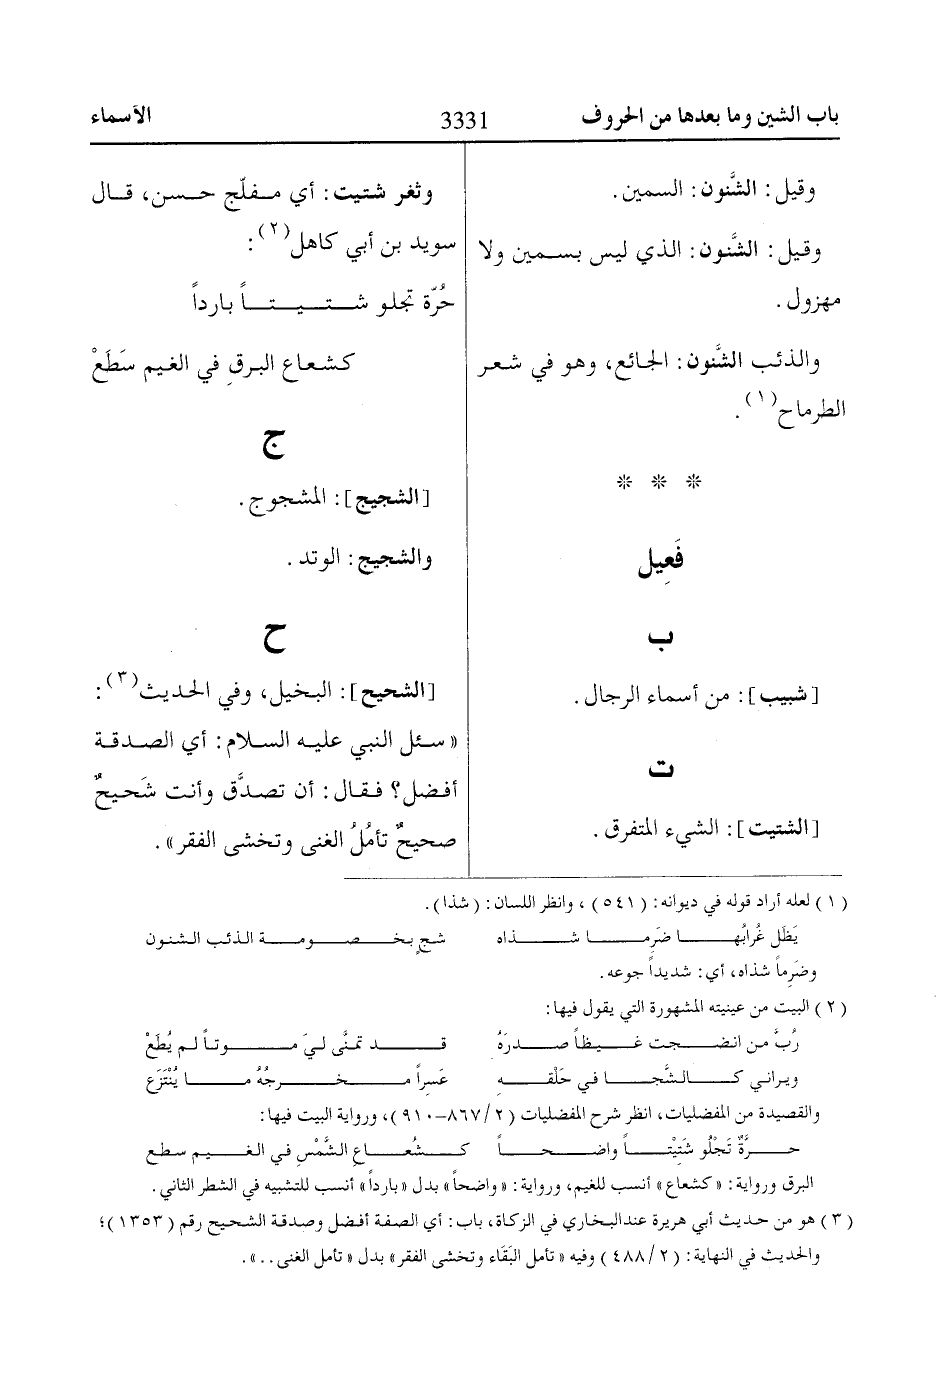 باب الشين وما بعدها من الحروف 3331 الأسماء
وقيل: الشَّنون: السمين.
وقيل: الشَّنون: الذي ليس بسمين ولا
مهزول.
والذئب الشَّنون: الجائع، وهو في شعر
الطرماح(١).
* * *
فَعِيل
ب
[شبيب]: من أسماء الرجال.
ت
[الشتيت]: الشيء المتفرق.
وثغر شتيت: أي مفلّج حسن، قال
سويد بن أبي كاهل(٢):
حُرّة تجلو شتيتاً بارداً
كشعاع البرقِ في الغيم سَطَعْ
ج
[الشجيج]: المشجوج.
والشجيج: الوتد.
ح
[الشحيح]: البخيل، وفي الحديث(٣):
«سئل النبي عليه السلام: أي الصدقة
أفضل؟ فقال: أن تصدَّق وأنت شَحيحٌ
صحيحٌ تأمُلُ الغنى وتخشى الفقر».
(١) لعله أراد قوله في ديوانه: (٥٤١)، وانظر اللسان: (شذا).
يَظَل غُرابُها ضَرِما شذاه شجٍ بخصومة الذئب الشنون
وضَرِماً شذاه، أي: شديداً جوعه.
(٢) البيت من عينيته المشهورة التي يقول فيها:
رُبَّ من انضجت غيظاً صدرَهُ قد تمنَّى ليَ موتاً لم يُطَعْ
ويراني كالشَّجا في حَلْقه عَسِراً مخرجُهُ ما يُنْتَزَع
والقصيدة من المفضليات، انظر شرح المفضليات (٢/٨٦٧-٩١٠)، ورواية البيت فيها:
حرَّةٌ تَجْلُو شَتِيْتاً واضحاً كشُعاع الشَّمْسِ في الغيم سطع
البرق ورواية: «كشعاع» أنسب للغيم، ورواية: «واضحاً» بدل «بارداً» أنسب للتشبيه في الشطر الثاني.
(٣) هو من حديث أبي هريرة عند البخاري في الزكاة، باب: أي الصفة أفضل وصدقة الشحيح رقم (١٣٥٣)؛
والحديث في النهاية: (٢/٤٨٨) وفيه «تأمل البَقَاء وتخشى الفقر» بدل «تأمل الغنى..».